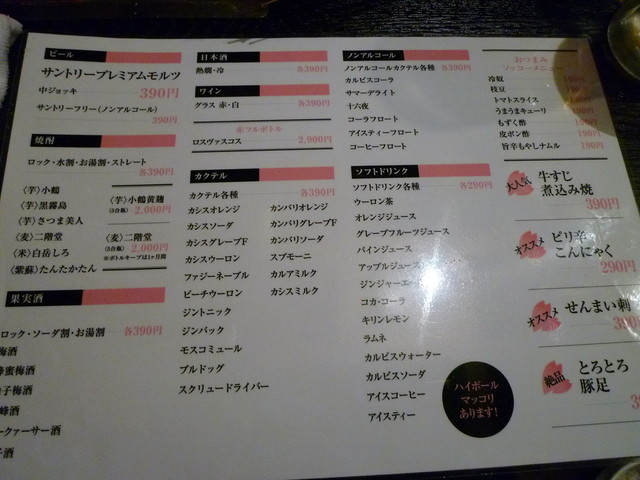 ビール
サントリープレミアムモルツ
中ジョッキ 390円
サントリーフリー(ノンアルコール)
390円
焼酎
ロック・水割・お湯割・ストレート
各390円
〈芋〉小鶴
〈芋〉黒霧島
〈芋〉さつま美人
〈麦〉二階堂
〈米〉白岳しろ
〈紫蘇〉たんたかたん
〈芋〉小鶴黄麹
(5合瓶) 2,000円
〈麦〉二階堂
(5合瓶) 2,000円
※ボトルキープは1ヶ月間
果実酒
ロック・ソーダ割・お湯割 各390円
梅酒
蜂蜜梅酒
子梅酒
蜂酒
ークァーサー酒
酒
日本酒
熱燗・冷 各390円
ワイン
グラス 赤・白 各390円
赤フルボトル
ロスヴァスコス 2,900円
カクテル
カクテル各種 各390円
カシスオレンジ
カシスソーダ
カシスグレープF
カシスウーロン
ファジーネーブル
ピーチウーロン
ジントニック
ジンバック
モスコミュール
ブルドッグ
スクリュードライバー
カンパリオレンジ
カンパリグレープF
カンパリソーダ
スプモーニ
カルアミルク
カシスミルク
ノンアルコール
ノンアルコールカクテル各種 各390円
カルピスコーラ
サマーデライト
十六夜
コーラフロート
アイスティーフロート
コーヒーフロート
ソフトドリンク
ソフトドリンク各種 各290円
ウーロン茶
オレンジジュース
グレープフルーツジュース
パインジュース
アップルジュース
ジンジャーエー
コカ・コーラ
キリンレモン
ラムネ
カルピスウォーター
カルピスソーダ
アイスコーヒー
アイスティー
ハイボール
マッコリ
あります!
おつまみ
ソッコーメニュー
冷奴
枝豆
トマトスライス
うまうまキューリ 190円
もずく酢 190円
皮ポン酢 190円
旨辛もやしナムル 190円
大人気 牛すじ
煮込み焼
390円
オススメ ピリ辛
こんにゃく
290円
オススメ せんまい刺
絶品 とろとろ
豚足